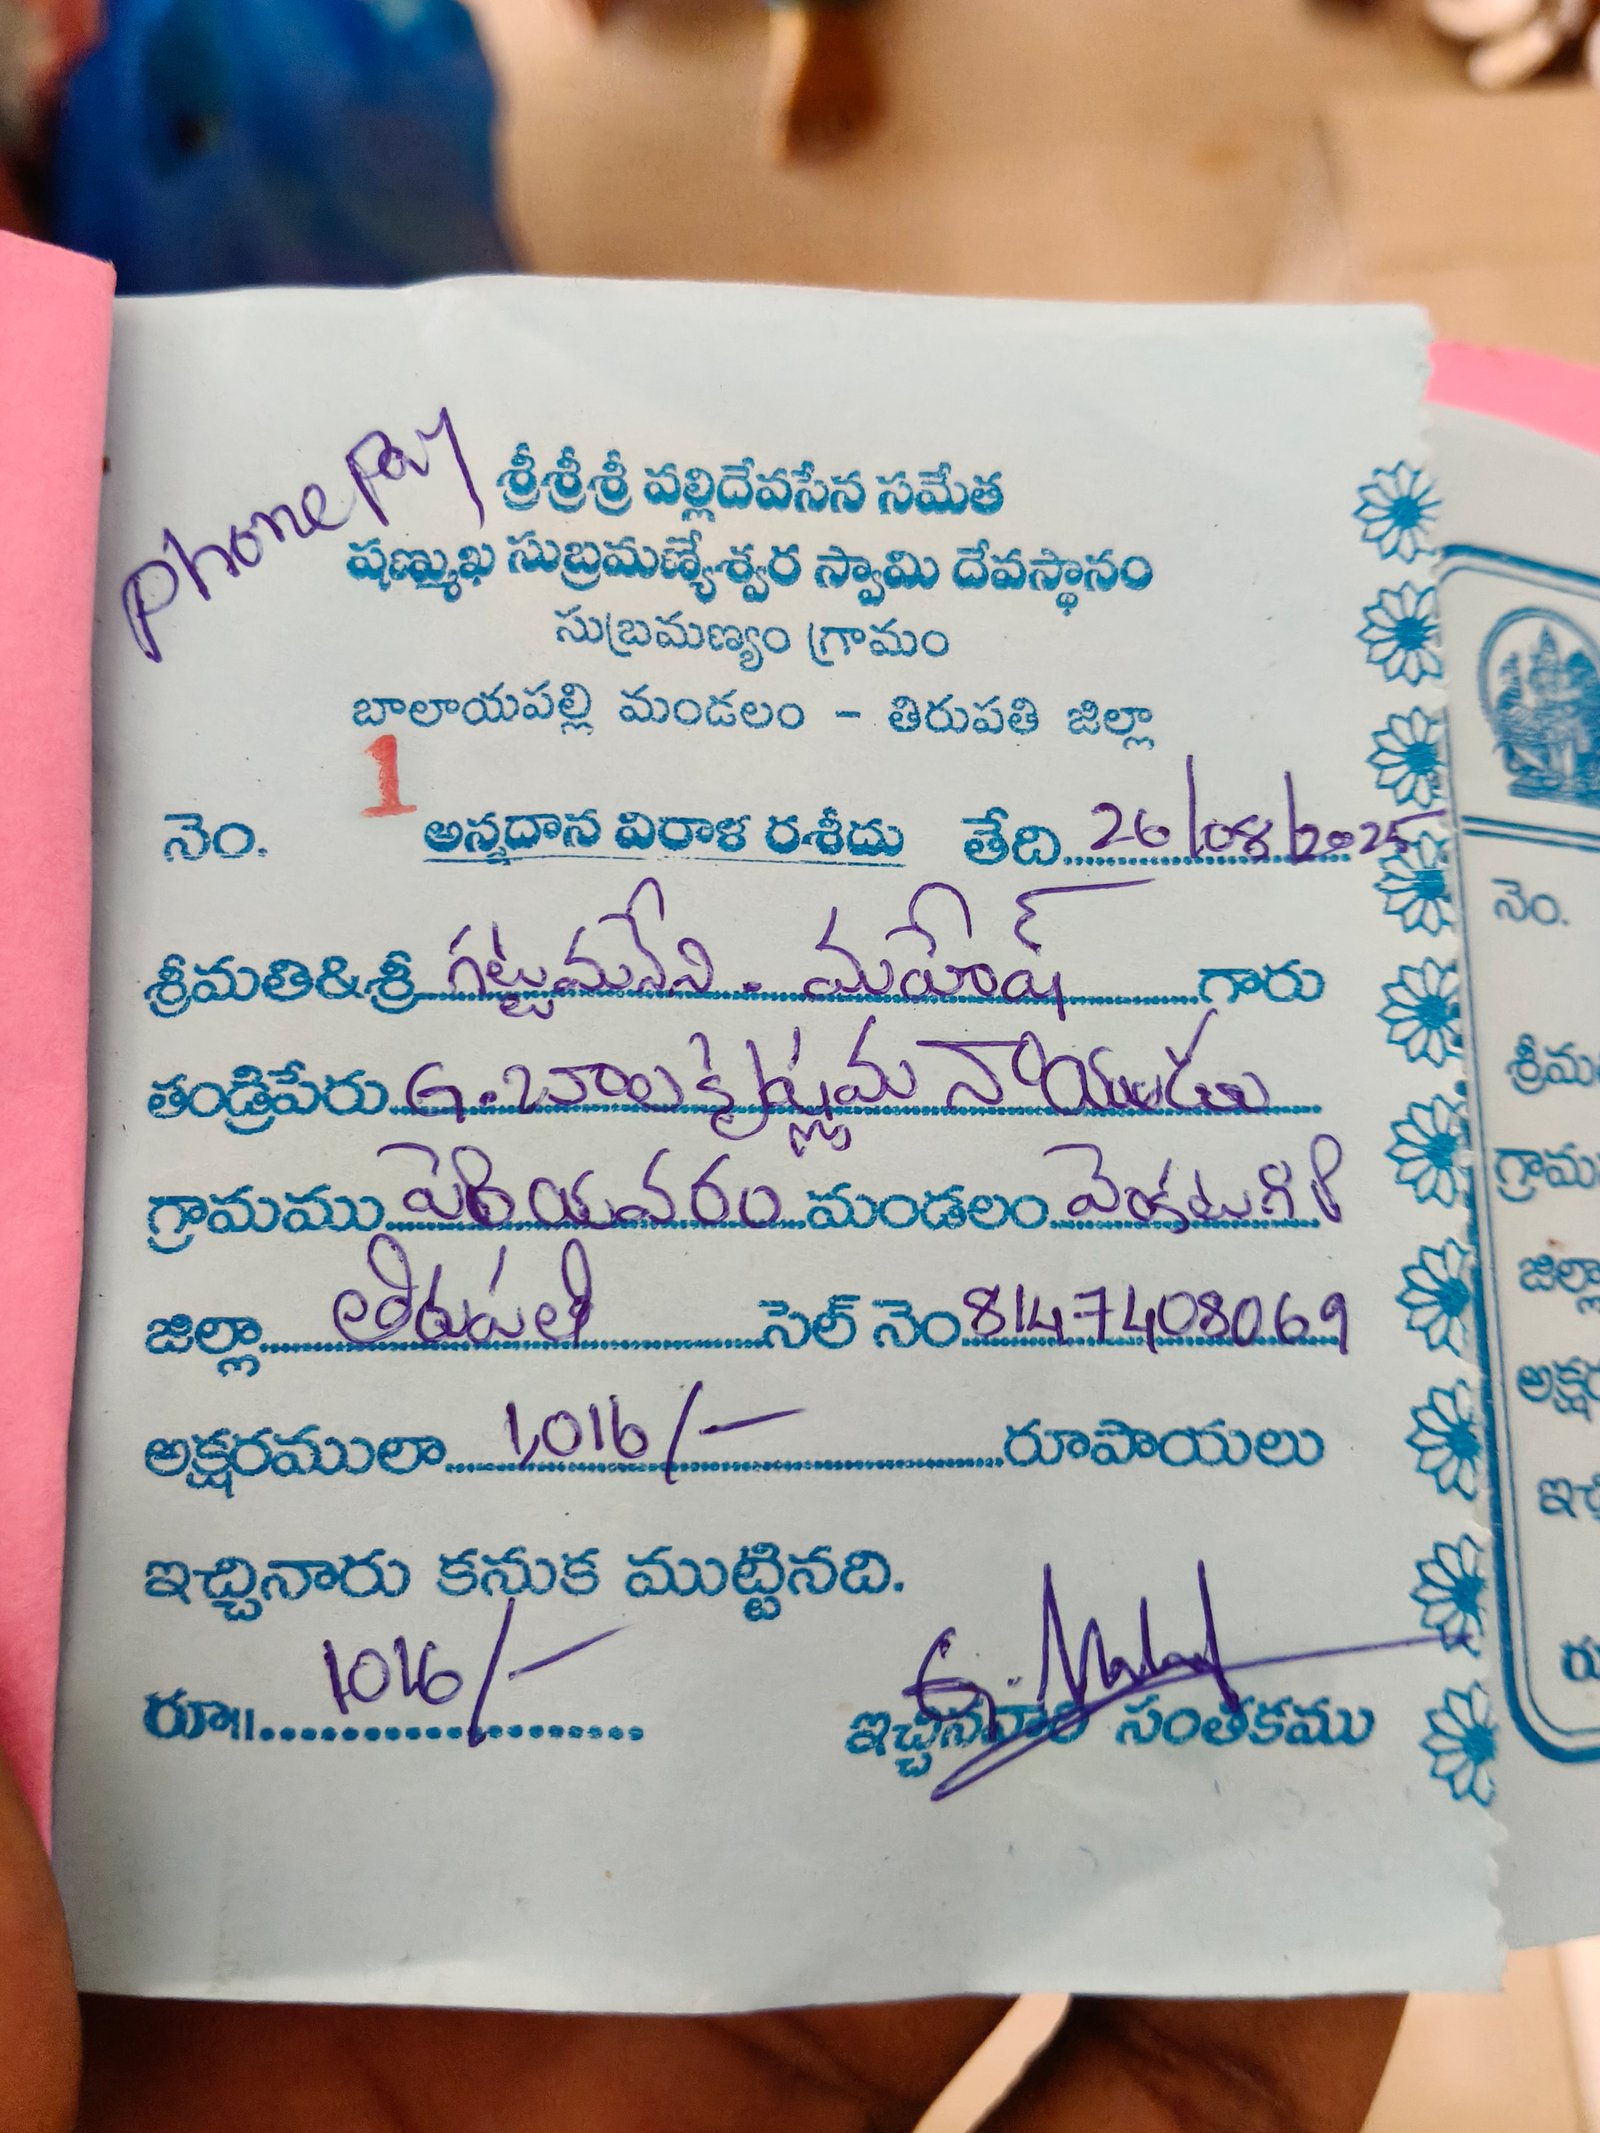 phonepay
శ్రీశ్రీశ్రీ వల్లిదేవసేన సమేత
షణ్ముఖ సుబ్రమణ్యేశ్వర స్వామి దేవస్థానం
సుబ్రమణ్యం గ్రామం
బాలాయపల్లి మండలం - తిరుపతి జిల్లా
నెం. 1 అన్నదాన విరాళ రశీదు తేది 26/08/2025
శ్రీమతి&శ్రీ గట్టుమనేని - మహేష్ గారు
తండ్రిపేరు G. బాలక్రిష్ణమ నాయుడు
గ్రామము పెరియవరం మండలం వెంకటగిరి
జిల్లా తిరుపతి సెల్ నెం 8147408069
అక్షరములా 1,016/- రూపాయలు
ఇచ్చినారు కనుక ముట్టినది.
రూ॥ 1016/-
ఇచ్చినవారి సంతకము
నెం.
గ్రామ
జిల్లా